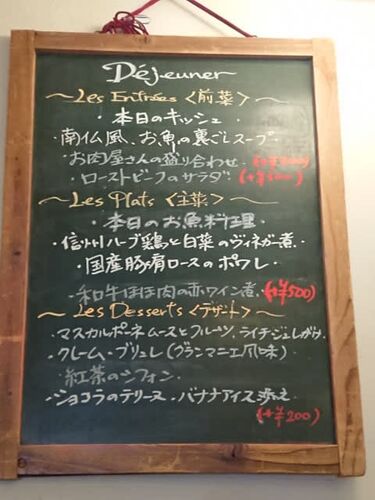 Déjeuner
～Les Entrées <前菜>～
・本日のキッシュ
・南仏風、お魚の裏ごしスープ
・お肉屋さんの盛り合わせ
・ローストビーフのサラダ
～Les Plats <主菜>～
・本日のお魚料理
・信州ハーブ鶏と白菜のヴィネガー煮
・国産豚肩ロースのポワレ
・和牛ほほ肉の赤ワイン煮 (+¥500)
～Les Desserts <デザート>～
・マスカルポーネムースとフルーツ、ライチジュレがけ
・クレーム・ブリュレ (グランマニエ風味)
・紅茶のシフォン
・ショコラのテリーヌ・バナナアイス添え
(+¥200)